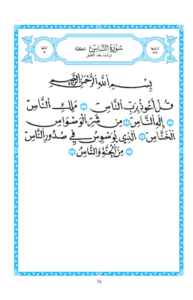 سُورَةُ النَّاسِ مَكِّيَّة
بِسْمِ اللَّهِ الرَّحْمَٰنِ الرَّحِيمِ
قُلْ أَعُوذُ بِرَبِّ النَّاسِ ۝ مَلِكِ النَّاسِ
۝ إِلَٰهِ النَّاسِ ۝ مِنْ شَرِّ الْوَسْوَاسِ
الْخَنَّاسِ ۝ الَّذِي يُوَسْوِسُ فِي صُدُورِ النَّاسِ
۝ مِنَ الْجِنَّةِ وَالنَّاسِ ۝